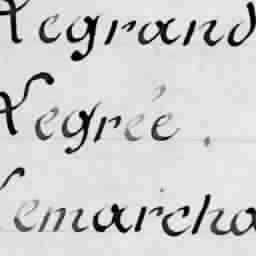 Legrand
Legrée.
Lemarcha